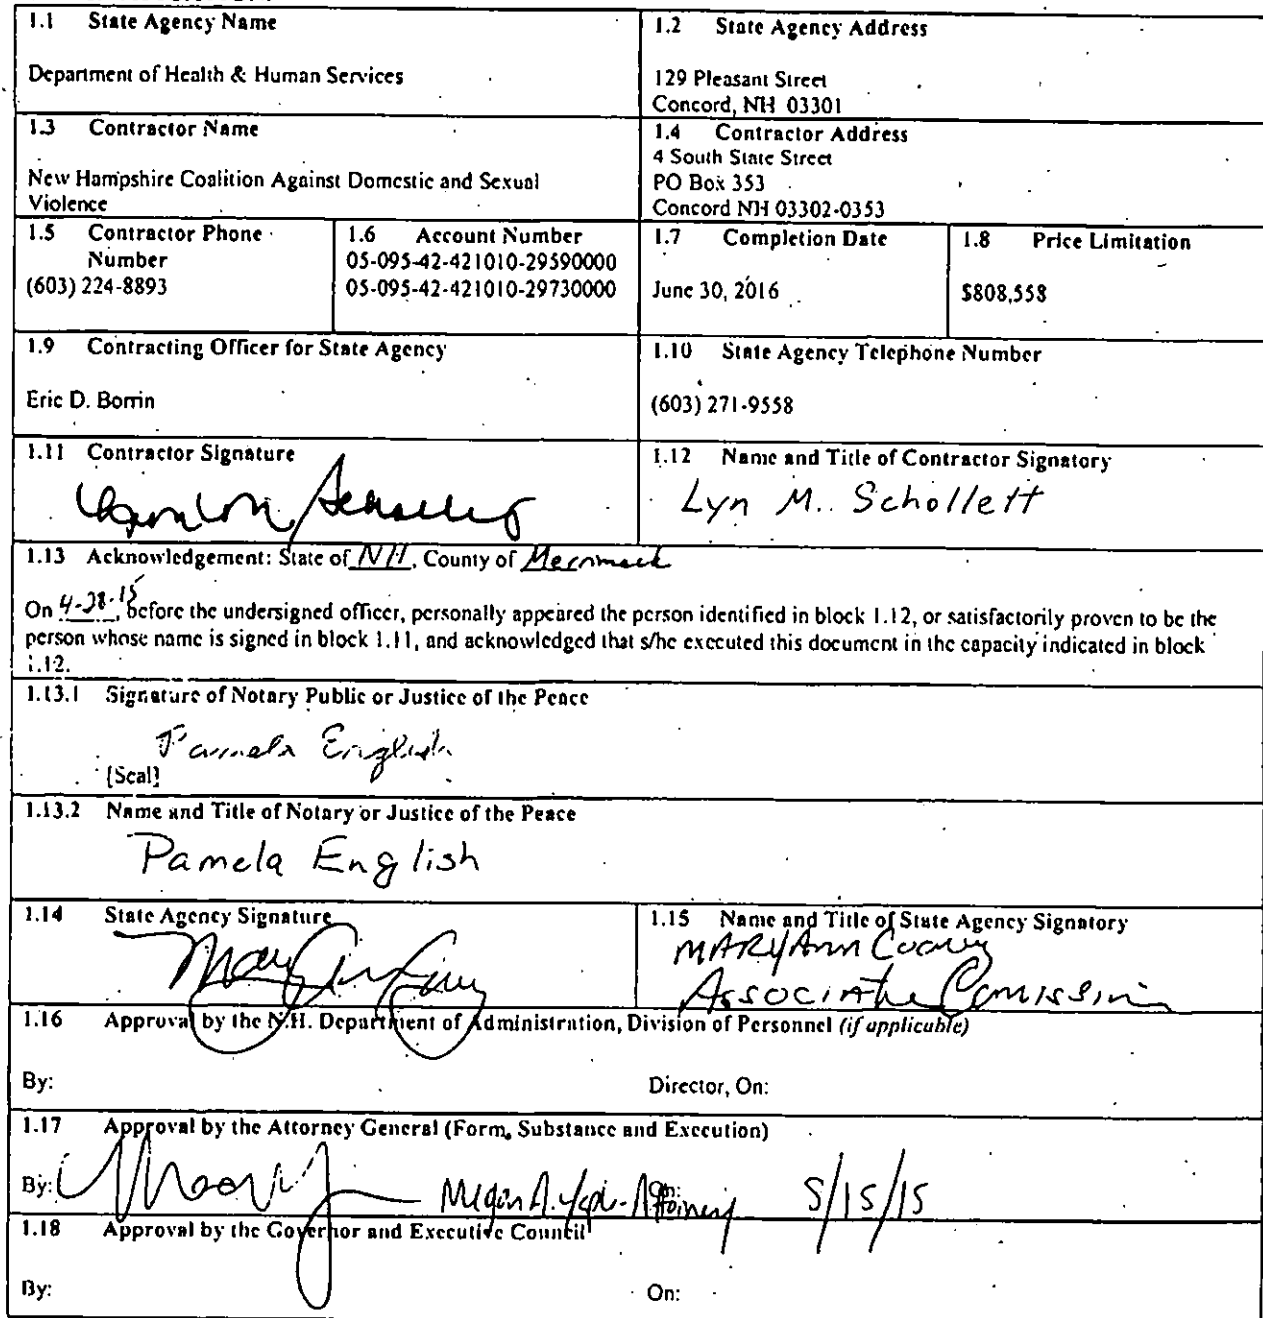 1.1 State Agency Name
Department of Health & Human Services
1.2 State Agency Address
129 Pleasant Street
Concord, NH 03301
1.3 Contractor Name
New Hampshire Coalition Against Domestic and Sexual
Violence
1.4 Contractor Address
4 South State Street
PO Box 353
Concord NH 03302-0353
1.5 Contractor Phone
Number
(603) 224-8893
1.6 Account Number
05-095-42-421010-29590000
05-095-42-421010-29730000
1.7 Completion Date
June 30, 2016
1.8 Price Limitation
$808,558
1.9 Contracting Officer for State Agency
Eric D. Borrin
1.10 State Agency Telephone Number
(603) 271-9558
1.11 Contractor Signature
1.12 Name and Title of Contractor Signatory
Lyn M. Schollett
1.13 Acknowledgement: State of NH, County of Merrimack
On 4-28-15, before the undersigned officer, personally appeared the person identified in block 1.12, or satisfactorily proven to be the
person whose name is signed in block 1.11, and acknowledged that s/he executed this document in the capacity indicated in block
1.12.
1.13.1 Signature of Notary Public or Justice of the Peace
Pamela English
[Seal]
1.13.2 Name and Title of Notary or Justice of the Peace
Pamela English
1.14 State Agency Signature
1.15 Name and Title of State Agency Signatory
MARYAnn Cooney
Associate Comissin
1.16 Approval by the N.H. Department of Administration, Division of Personnel (if applicable)
By: Director, On:
1.17 Approval by the Attorney General (Form, Substance and Execution)
By: Megan A. - Attorney On: 5/15/15
1.18 Approval by the Governor and Executive Council
By: On: